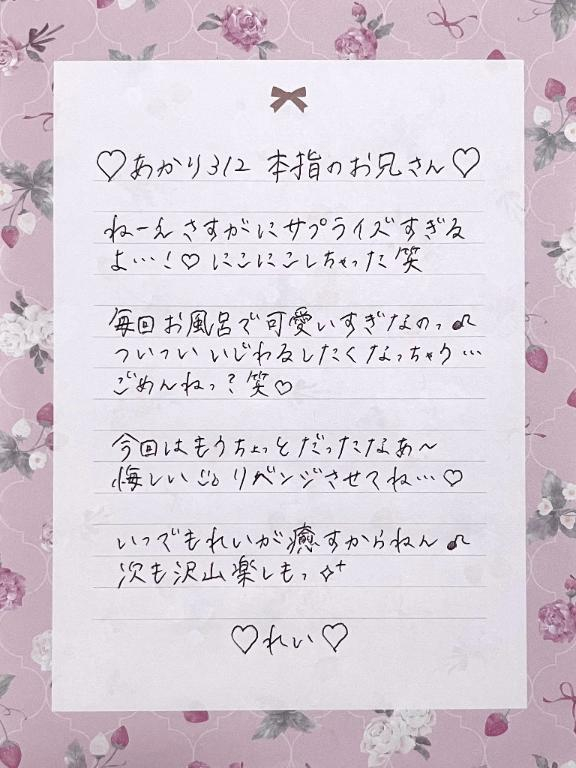 ♡あかり312 本指のお兄さん♡
ねーえ さすがにサプライズすぎる
よ…！♡ にこにこしちゃった 笑
毎回お風呂で可愛いすぎなのっ♪
ついつい いじわるしたくなっちゃう…
ごめんねっ？笑♡
今回はもうちょっとだったなあ〜
悔しい リベンジさせてね…♡
いつでもれいが癒すからねん♪
次も沢山楽しもっ✧⁺
♡れい♡